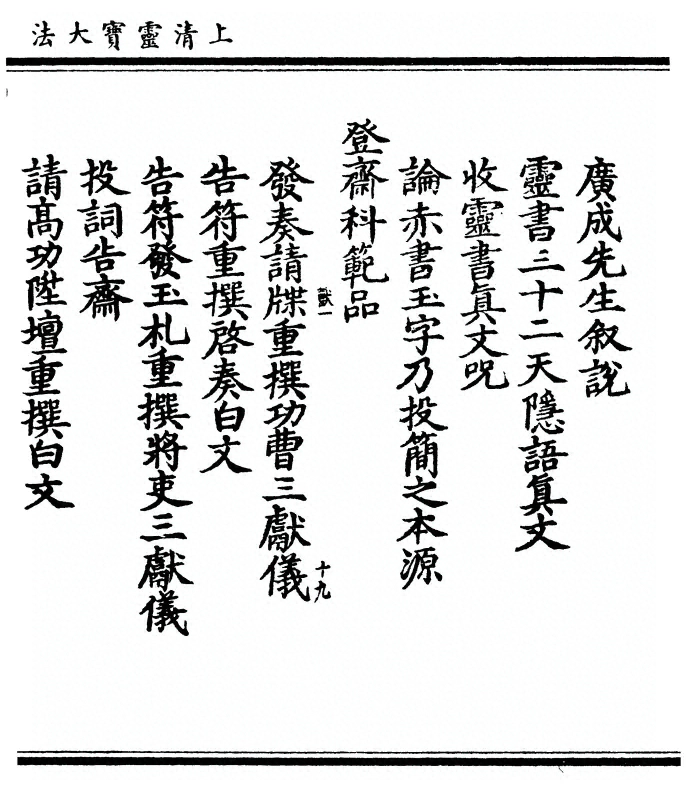 上清靈寶大法
廣成先生叙說
靈書三十二天隱語眞文
收靈書眞文呪
論赤書玉字乃投簡之本源
登齋科範品
發奏請牒重撰功曹三獻儀
十九
告符重撰啓奏白文
告符發玉札重撰將吏三獻儀
投詞告齋
請高功陞壇重撰白文